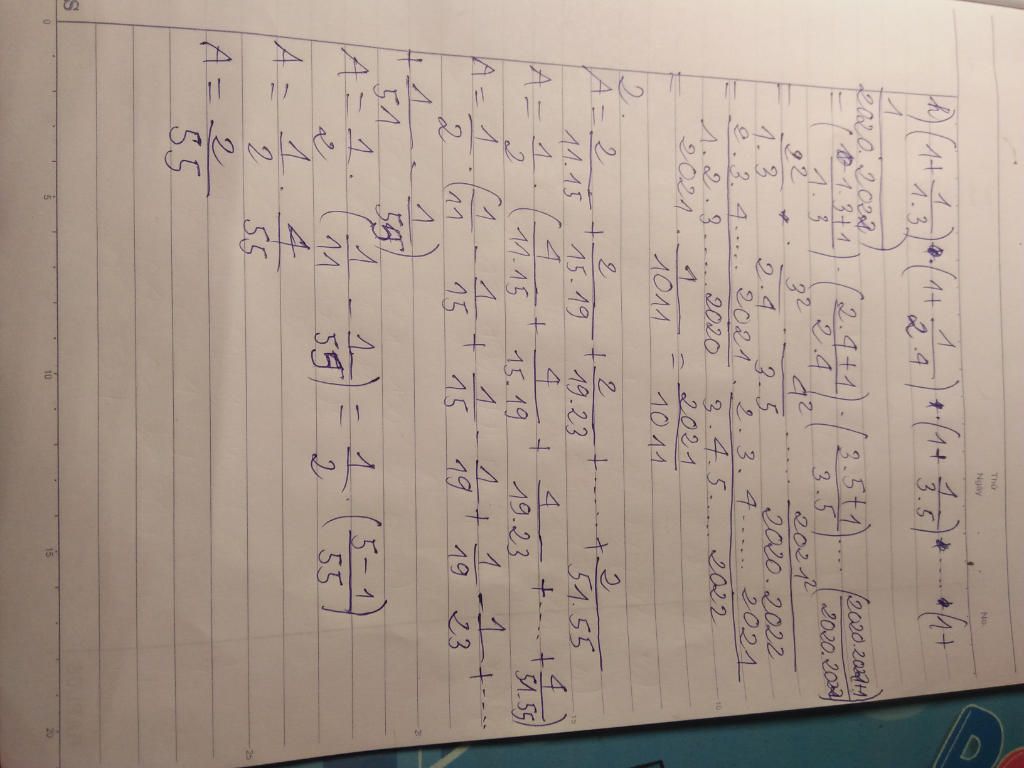 Thứ
Ngày
No.
b) (1 + 1/1.3) . (1 + 1/2.4) . (1 + 1/3.5) . ..... . (1 +
1/2020.2022)
= (1.3+1/1.3) . (2.4+1/2.4) . (3.5+1/3.5) .....
= 2²/1.3 . 3²/2.4 . 4²/3.5 ........ 2021²/2020.2022
= 2.3.4.....2021/1.2.3.....2020 . 2.3.4.....2021/3.4.5.....2022
= 2021 . 1/1011 = 2021/1011
2.
A = 2/11.15 + 2/15.19 + 2/19.23 + ...... + 2/51.55
A = 1/2 . (4/11.15 + 4/15.19 + 4/19.23 + ..... + 4/51.55)
A = 1/2 . (1/11 - 1/15 + 1/15 - 1/19 + 1/19 - 1/23 + ....
+ 1/51 - 1/55)
A = 1/2 . (1/11 - 1/55) = 1/2 . (5-1/55)
A = 1/2 . 4/55
A = 2/55
S
0 5 10 15 20